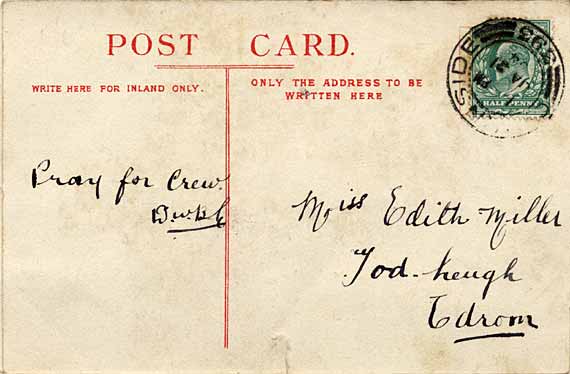 POST CARD.
WRITE HERE FOR INLAND ONLY.
ONLY THE ADDRESS TO BE
WRITTEN HERE
Pray for Crew.
Miss Edith Miller
Tod-heugh
Edrom
HALF PENNY
SIDE